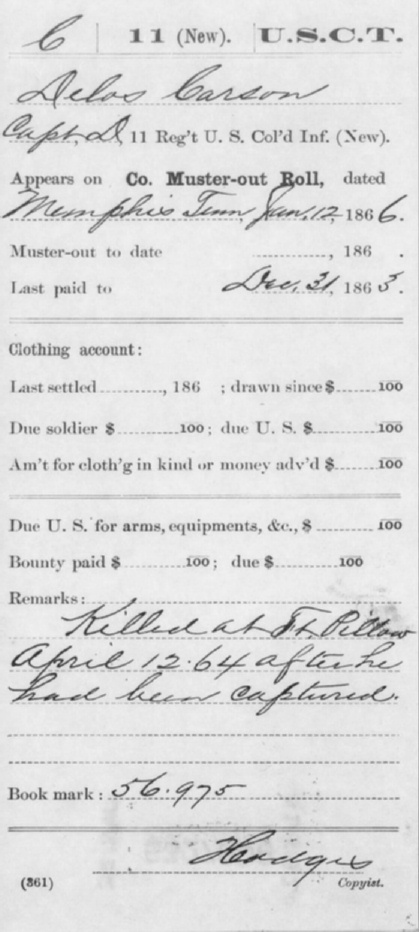 C | 11 (New). | U.S.C.T.
Delos Carson
Capt, D, 11 Reg't U. S. Col'd Inf. (New).
Appears on Co. Muster-out Roll, dated
Memphis Tenn, Jan. 12, 1866.
Muster-out to date ............, 186 .
Last paid to Dec. 31, 1863.
Clothing account:
Last settled............, 186 ; drawn since $........100
Due soldier $............100; due U. S. $............100
Am't for cloth'g in kind or money adv'd $........100
Due U. S. for arms, equipments, &c., $............100
Bounty paid $............100; due $............100
Remarks:
Killed at Ft. Pillow
April 12.64 after he
had been captured.
Book mark: 56.975
Hodges
(361) Copyist.